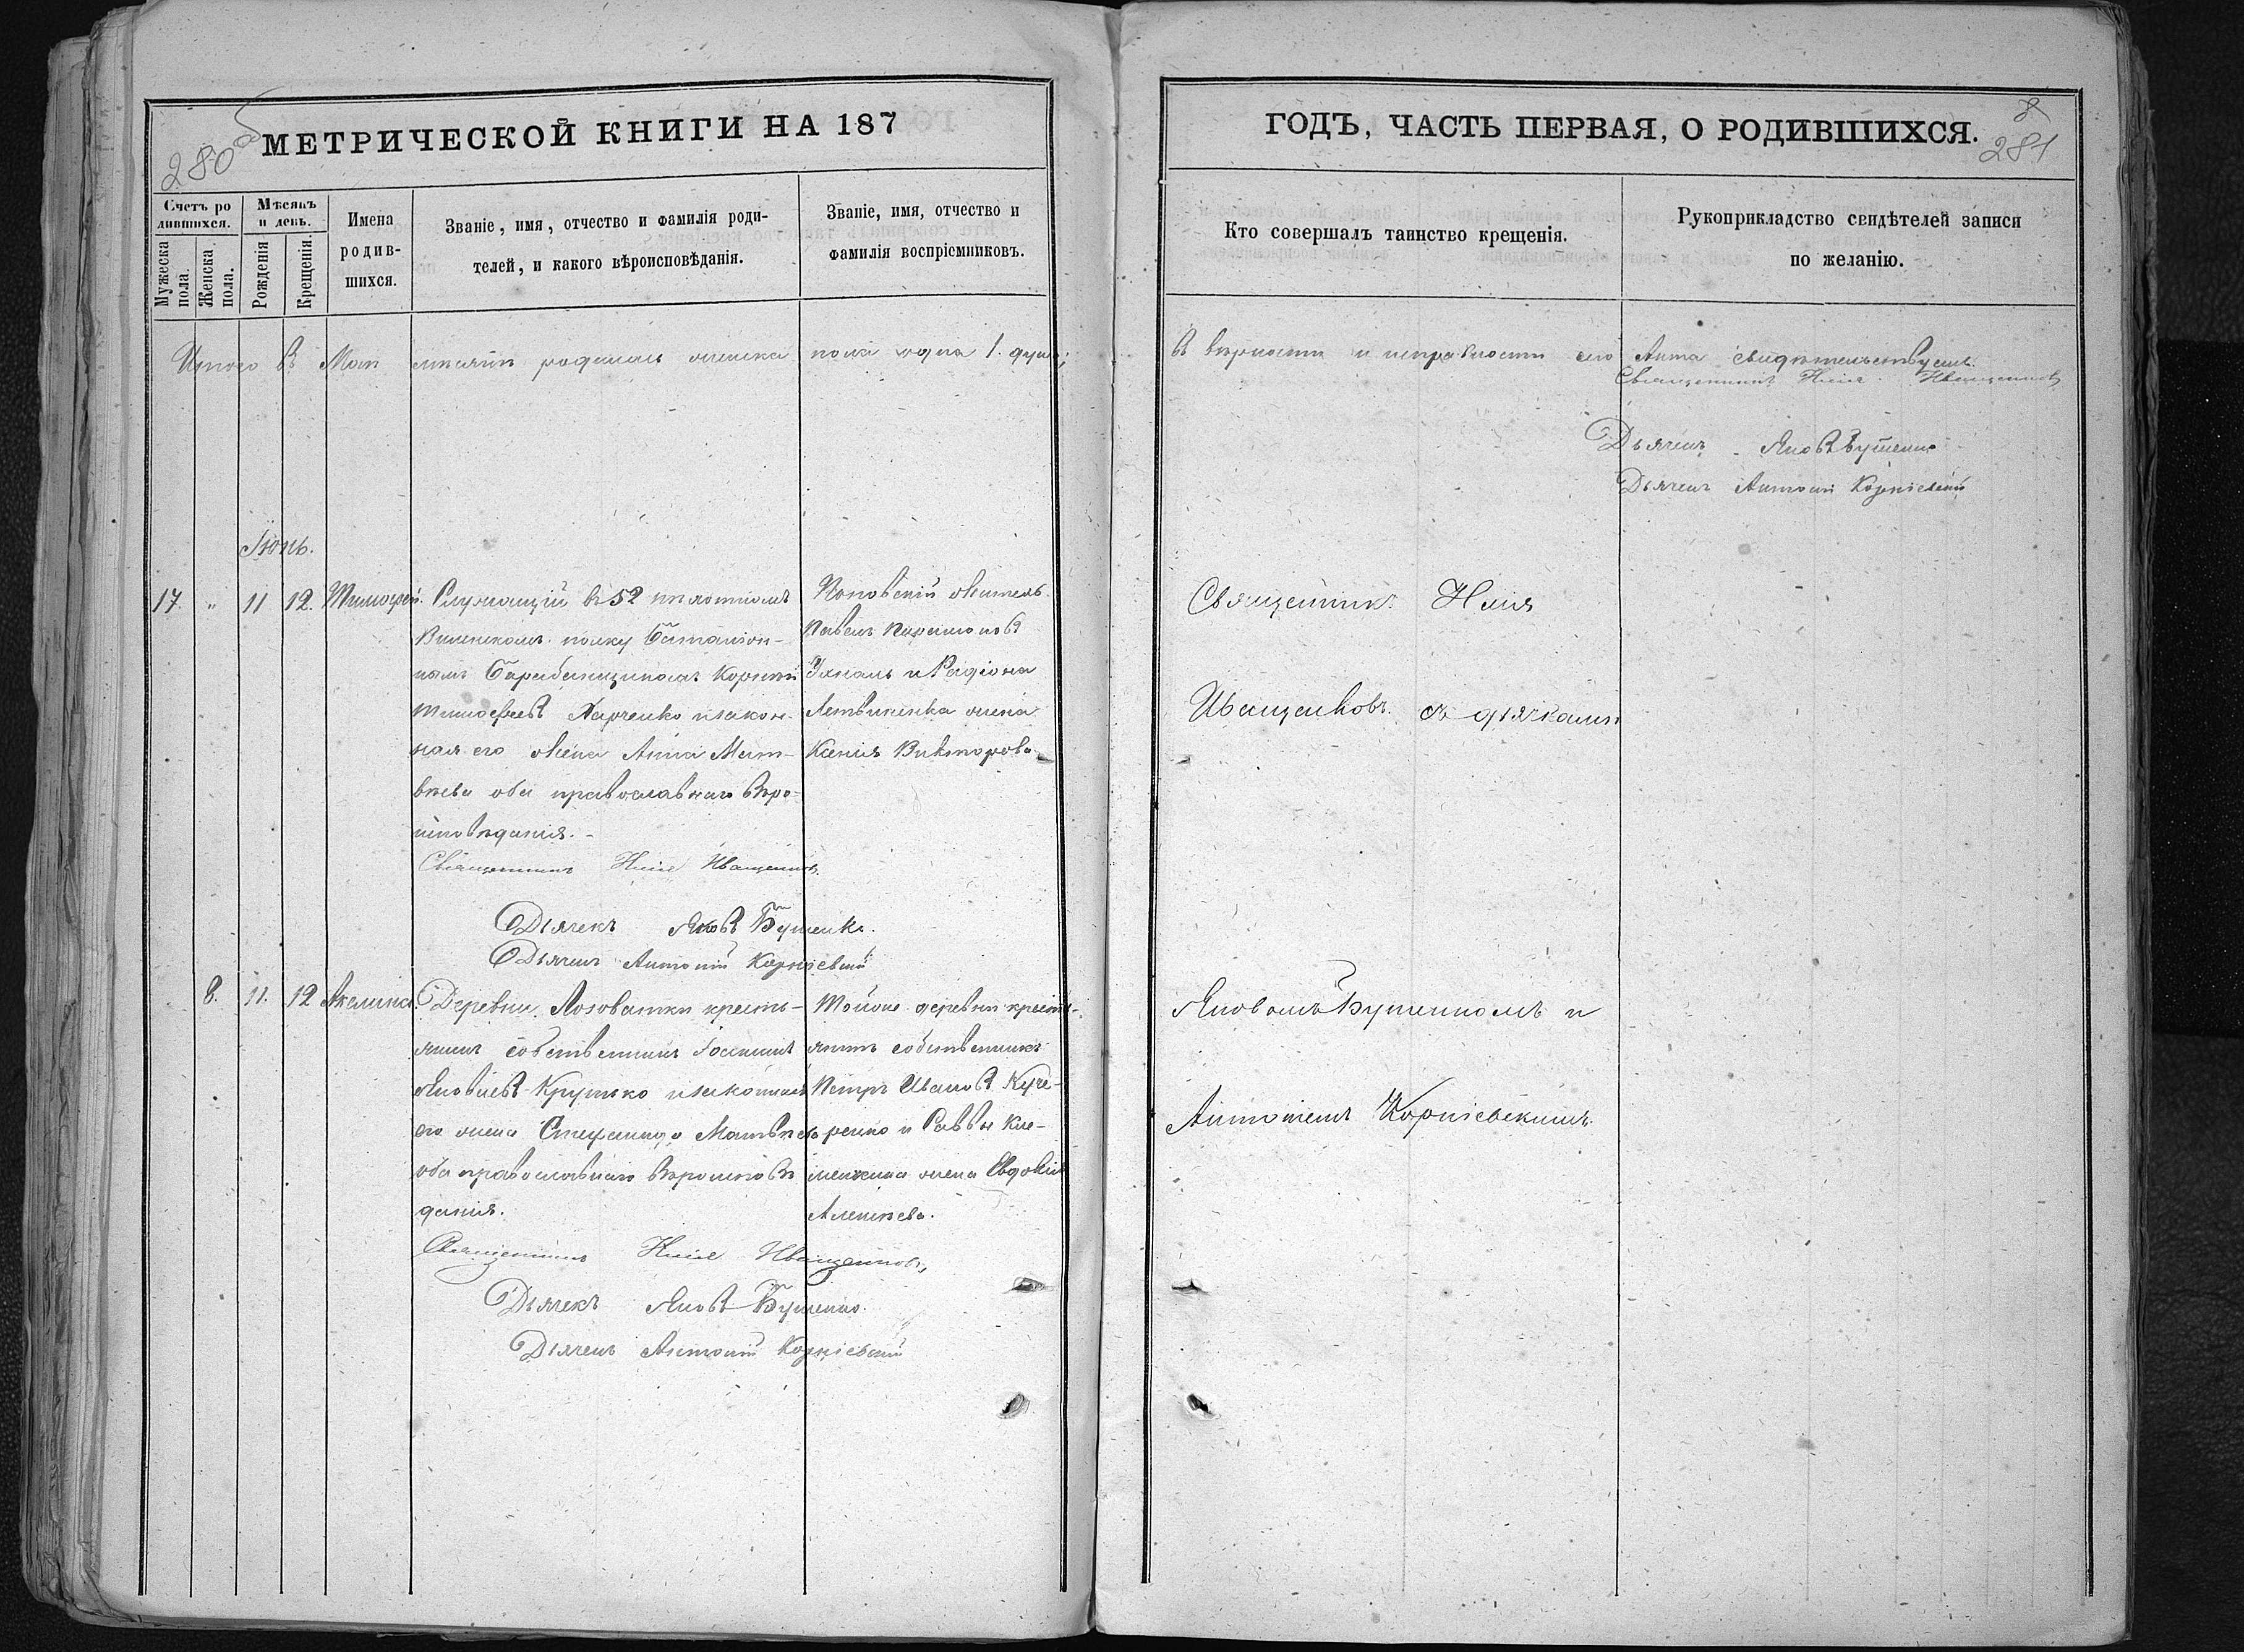 280 об
МЕТРИЧЕСКОЙ КНИГИ НА 187
Счетъ ро
дившихся.
Мужеска
пола.
Женска
пола.
Мѣсяцъ
и день.
Рожденія
Крещенія.
Имена
родив-
шихся.
Званіе, имя, отчество и фамилія роди-
телей, и какого вѣроисповѣданія.
Званіе, имя, отчество и
фамилія воспріемниковъ.
Итого въ Маи родилось женска пола одна 1. душа;
Іюнь.
17. " 11 12. Тимофей.
Служащій въ 52 пѣхотномъ
Виленскомъ полку Баталіон-
нымъ Барабанщикомъ Корнилій
Тимофеевъ Харченко и закон-
ная его жена Анна Мат-
вѣева оба православнаго вѣро-
исповѣданія.-
Священникъ Илія Иващенковъ.
Дьячекъ Яковъ Бутенко.
Дьячекъ Антоній Корніевскій
житель
Павелъ
и Радіона
Литвиненка жена
Ксенія Викторова
8. 11. 12 Акелина.
Деревни Лозоватки кресть-
янинъ собственникъ Іоаннъ
Яковлевъ Крутько и законная
его жена Стефанида Матвѣева
оба православнаго вѣроисповѣ
данія.
Священникъ Илія Иващенковъ,
Дьячекъ Яковъ Бутенко.
Дьячекъ Антоній Корніевскій
Тойже деревни кресть-
янинъ собственникъ
Петръ Ивановъ Куче-
ренко и Саввы Кли-
менка жена Евдокія
Алексѣева.
281
ГОДЪ, ЧАСТЬ ПЕРВАЯ, О РОДИВШИХСЯ.
Кто совершалъ таинство крещенія.
Рукоприкладство свидѣтелей записи
по желанію.
Въ вѣрности и исправности сего Акта свидѣтельствуемъ.
Священникъ Илія Иващенковъ
Дьячекъ Яковъ Бутенко
Дьячекъ Антоній Корніевскій
Священникъ Илія
Иващенковъ съ дьячками
Яковомъ Бутенкомъ и
Антоніемъ Корніевскимъ.